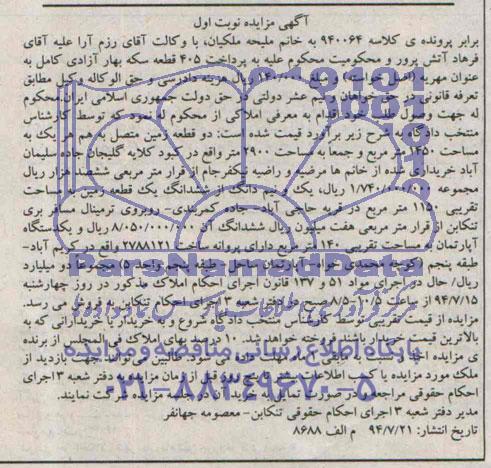 آگهی مزایده نوبت اول
برابر پرونده ی کلاسه ۹۴۰۰۶۴ به خانم ملیحه ملکیان، با وکالت آقای رزم آرا علیه آقای
فرهاد آتش پرور و محکومیت محکوم علیه به پرداخت ۴۰۵ قطعه سکه بهار آزادی کامل به
عنوان مهریه (اصل خواسته) و مبلغ ریال هزینه دادرسی و حق الوکاله وکیل مطابق
تعرفه قانونی در حق خواهان و نیم عشر دولتی در حق دولت جمهوری اسلامی ایران.محکوم
له جهت وصول طلب خود اقدام به معرفی املاکی از محکوم له نمود که توسط کارشناس
منتخب دادگاه به شرح زیر برآورد قیمت شده است: دو قطعه زمین متصل به هم هر یک به
مساحت ۱۴۵۰ متر مربع و جمعا به مساحت ۲۹۰۰ متر واقع در کبود کلایه گلیجان جاده سلیمان
آباد خریداری شده از خانم ها مرضیه و راضیه نیکفرجام از قرار متر مربعی ششصد هزار ریال
مجموعه ۱/۷۴۰/۰۰۰/۰۰۰ ریال، یک و نیم دانگ از ششدانگ یک قطعه زمین به مساحت
تقریبی ۱۱۵۰ متر مربع در قریه حاجی آباد- جاده کمربندی- روبروی ترمینال مسافر بری
تنکابن از قرار متر مربعی هفت میلیون ریال ششدانگ آن ۸/۰۵۰/۰۰۰/۰۰۰ ریال و یک دستگاه
آپارتمان به مساحت تقریبی ۱۴۰ متر مربع دارای پروانه ساخت ۲۷۸۸۱۲۱ واقع در کریم آباد-
طبقه پنجم (کوچه محمدی خواه آپارتمان ساحل- طبقه پنجم واحد ۱۵ مجموعا دو میلیارد
ریال/ حال در اجرای مواد ۵۱ و ۱۳۷ قانون اجرای احکام املاک مذکور در روز چهارشنبه
۹۴/۷/۱۵ از ساعت ۱۰/۵-۸/۵ صبح در دفتر شعبه ۳ اجرای احکام تنکابن به فروش می رسد.
مزایده از قیمت تقریبی توسط کارشناس منتخب دادگاه شروع و به خریدار یا خریدارانی که به
بالاترین قیمت خریدار باشند فروخته خواهد شد. ۱۰ درصد بهای املاک فی المجلس از برنده
ی مزایده اخذ جهت بازدید از
ملک مورد مزایده یا کسب اطلاعات بیشتر تا پنج روز قبل از زمان مزایده به دفتر شعبه ۳ اجرای
احکام حقوقی مراجعه و در صورت تمایل به خرید آن در جلسه مزایده شرکت نمایند.
مدیر دفتر شعبه ۳ اجرای احکام حقوقی تنکابن- معصومه جهانفر
تاریخ انتشار: ۹۴/۷/۲۱ م الف ۸۶۸۸
ParsNamadData
پایگاه اطلاع رسانی مناقصه و مزایده
۰۲۱-۸۸۳۴۹۶۷۰-۵